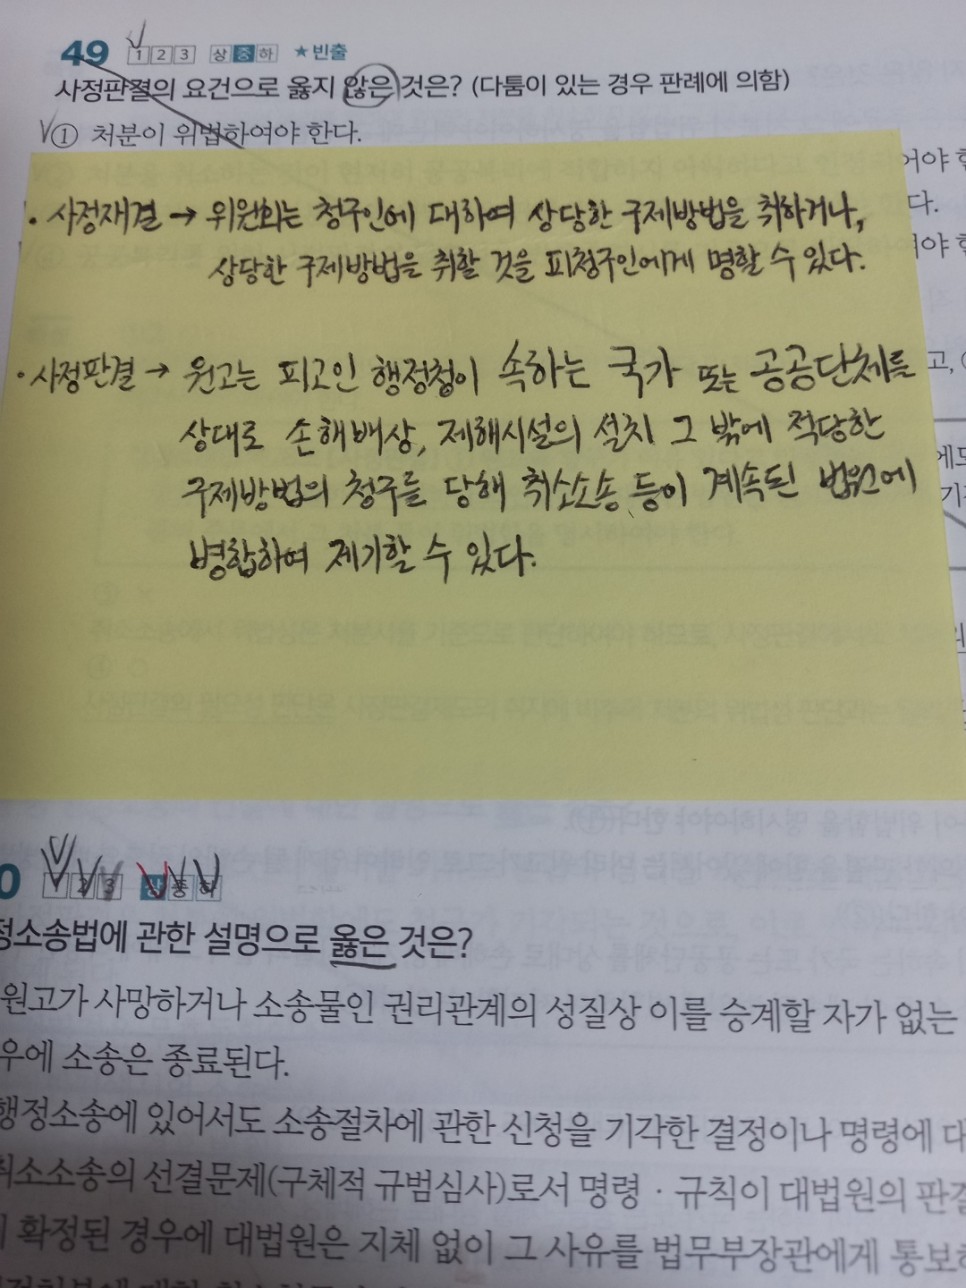 49 1 2 3 상 중 하 ★빈출
사정판결의 요건으로 옳지 않은 것은? (다툼이 있는 경우 판례에 의함)
① 처분이 위법하여야 한다.
• 사정재결 → 위원회는 청구인에 대하여 상당한 구제방법을 취하거나,
상당한 구제방법을 취할 것을 피청구인에게 명할 수 있다.
• 사정판결 → 원고는 피고인 행정청이 속하는 국가 또는 공공단체를
상대로 손해배상, 제해시설의 설치 그 밖에 적당한
구제방법의 청구를 당해 취소소송 등이 계속된 법원에
병합하여 제기할 수 있다.
0 1 2 3 상 중 하
정소송법에 관한 설명으로 옳은 것은?
원고가 사망하거나 소송물인 권리관계의 성질상 이를 승계할 자가 없는
우에 소송은 종료된다.
행정소송에 있어서도 소송절차에 관한 신청을 기각한 결정이나 명령에 대
취소소송의 선결문제(구체적 규범심사)로서 명령·규칙이 대법원의 판결
확정된 경우에 대법원은 지체 없이 그 사유를 법무부장관에게 통보하